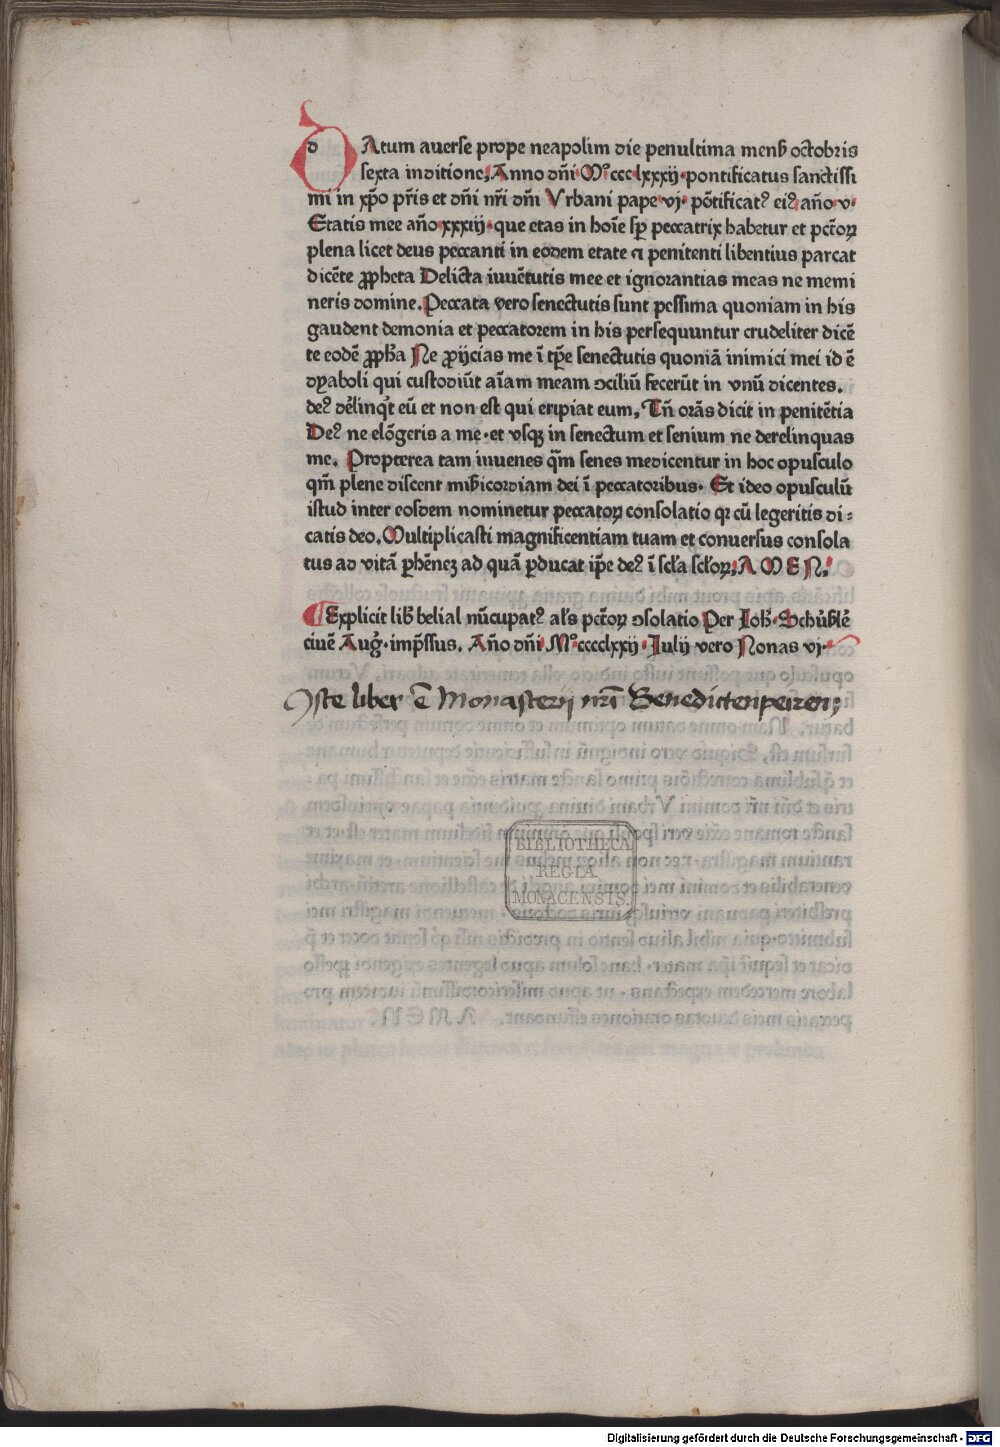 DAtum auerse prope neapolim die penultima mens̄ octobris
sexta inditione, Anno dn̄i M° ccc lxxxij pontificatus sanctissi
mi in xp̄o pr̄is et dn̄i nr̄i dn̄i Vrbani pape vj pōtificatꝰ eiꝰ an̄o v
Etatis mee an̄o xxxiij que etas in hoīe sp̄ peccatrix habetur et pctōꝝ
plena licet deus peccanti in eodem etate et penitenti libentius parcat
dicēte ꝓpheta Delicta iuuētutis mee et ignorantias meas ne memi
neris domine. Peccata vero senectutis sunt pessima quoniam in his
gaudent demonia et peccatorem in his persequuntur crudeliter dicē
te eodē ꝓph̄a Ne ꝓijcias me ī tp̄e senectutis quoniā inimici mei id ē
dyaboli qui custodiūt aīam meam ꝯciliū fecerūt in vnū dicentes.
deꝰ delinqͥt eū et non est qui eripiat eum, Tn̄ orās dicit in penitētia
Deꝰ ne elōgeris a me et vsqꝫ in senectum et senium ne derelinquas
me. Propterea tam iuuenes qͣm senes medicentur in hoc opusculo
qm̄ plene discent mīsicordiam dei ī peccatoribus. Et ideo opusculū
istud inter eosdem nominetur peccatoꝝ consolatio qꝛ cū legeritis di-
catis deo, Multiplicasti magnificentiam tuam et conuersus consola
tus ad vitā ꝑhēneꝫ ad quā ꝑducat ip̄e deꝰ ī scl̄a scl̄oꝝ, AMEN.
Explicit lib̄ belial nūcupatꝰ al̄s pctōꝝ ꝯsolatio Per Joh̄. Schüsslē
ciuē Auḡ. imp̄ssus. An̄o dn̄i M° ccccLxxij Julij vero Nonas vj
Iste liber ē Monasterij nr̄i Benedictenpeiren;
BIBLIOTHECA
REGIA
MONACENSIS.
Digitalisierung gefördert durch die Deutsche Forschungsgemeinschaft - DFG